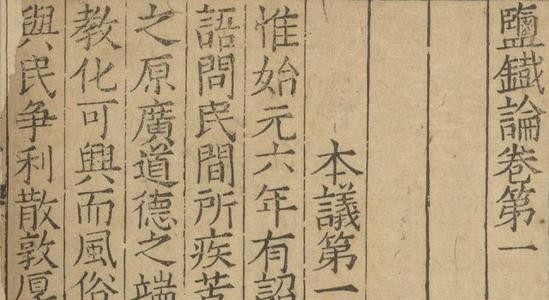 鹽鐵論卷第一
本議第一
惟始元六年有詔
語問民間所疾苦
之原廣道德之端
教化可興而風俗
與民争利散敦厚